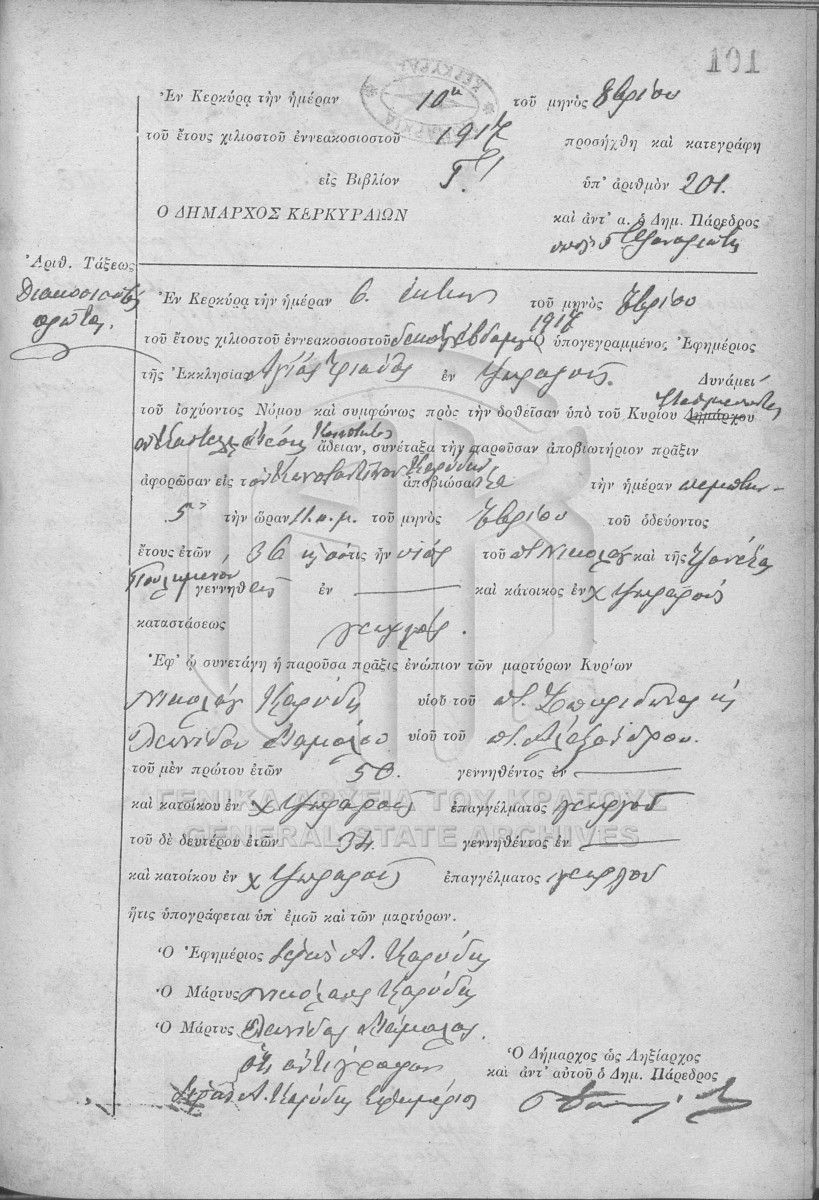 101
Ἐν Κερκύρᾳ τὴν ἡμέραν 10ην τοῦ μηνὸς 8βρίου
τοῦ ἔτους χιλιοστοῦ ἐννεακοσιοστοῦ 1917 προσήχθη καὶ κατεγράφη
εἰς Βιβλίον Γ' ὑπ' ἀριθμὸν 201.
Ο ΔΗΜΑΡΧΟΣ ΚΕΡΚΥΡΑΙΩΝ καὶ ἀντ' α. ὁ Δημ. Πάρεδρος
Ἀριθ. Τάξεως
Διακοσιοστὴ
πρώτη.
Ἐν Κερκύρᾳ τὴν ἡμέραν 6. ἕκτην τοῦ μηνὸς 8βρίου
1917
τοῦ ἔτους χιλιοστοῦ ἐννεακοσιοστοῦ Ὁ ὑπογεγραμμένος Ἐφημέριος
τῆς Ἐκκλησίας Ἁγίας Τριάδος ἐν Δυνάμει
τοῦ ἰσχύοντος Νόμου καὶ συμφώνως πρὸς τὴν δοθεῖσαν ὑπὸ τοῦ Κυρίου Δημάρχου
ἄδειαν, συνέταξα τὴν παροῦσαν ἀποβιωτήριον πρᾶξιν
ἀφορῶσαν εἰς τὸν Κωνσταντῖνον Καρύδην ἀποβιώσαντα τὴν ἡμέραν πέμπτην
5 τὴν ὥραν 11 π.μ. τοῦ μηνὸς 8βρίου τοῦ ὁδεύοντος
ἔτους ἐτῶν 36 κ ὅστις ἦν υἱὸς τοῦ π. Νικολάου καὶ τῆς
γεννηθεὶς ἐν καὶ κάτοικος ἐν χ
καταστάσεως γεωργός.
Ἐφ' ᾧ συνετάγη ἡ παροῦσα πρᾶξις ἐνώπιον τῶν μαρτύρων Κυρίων
Νικολάου Καρύδη υἱοῦ τοῦ π. Σπυρίδωνος κ
Λεωνίδου υἱοῦ τοῦ π. Ἀλεξάνδρου.
τοῦ μὲν πρώτου ἐτῶν 50. γεννηθέντος ἐν
καὶ κατοίκου ἐν χ ἐπαγγέλματος γεωργοῦ
ΓΕΝΙΚΑ ΑΡΧΕΙΑ ΤΟΥ ΚΡΑΤΟΥΣ
GENERAL STATE ARCHIVES
τοῦ δὲ δευτέρου ἐτῶν 34. γεννηθέντος ἐν
καὶ κατοίκου ἐν χ ἐπαγγέλματος γεωργοῦ
ἥτις ὑπογράφεται ὑπ' ἐμοῦ καὶ τῶν μαρτύρων.
Ὁ Ἐφημέριος Ἱερεὺς Α. Καρύδης
Ὁ Μάρτυς Νικόλαος Καρύδης
Ὁ Μάρτυς Λεωνίδας
Ὅτι ἀντίγραφον
Ὁ Δήμαρχος ὡς Ληξίαρχος
καὶ ἀντ' αὐτοῦ ὁ Δημ. Πάρεδρος
Ἱερεὺς Α. Καρύδης Ἐφημέριος